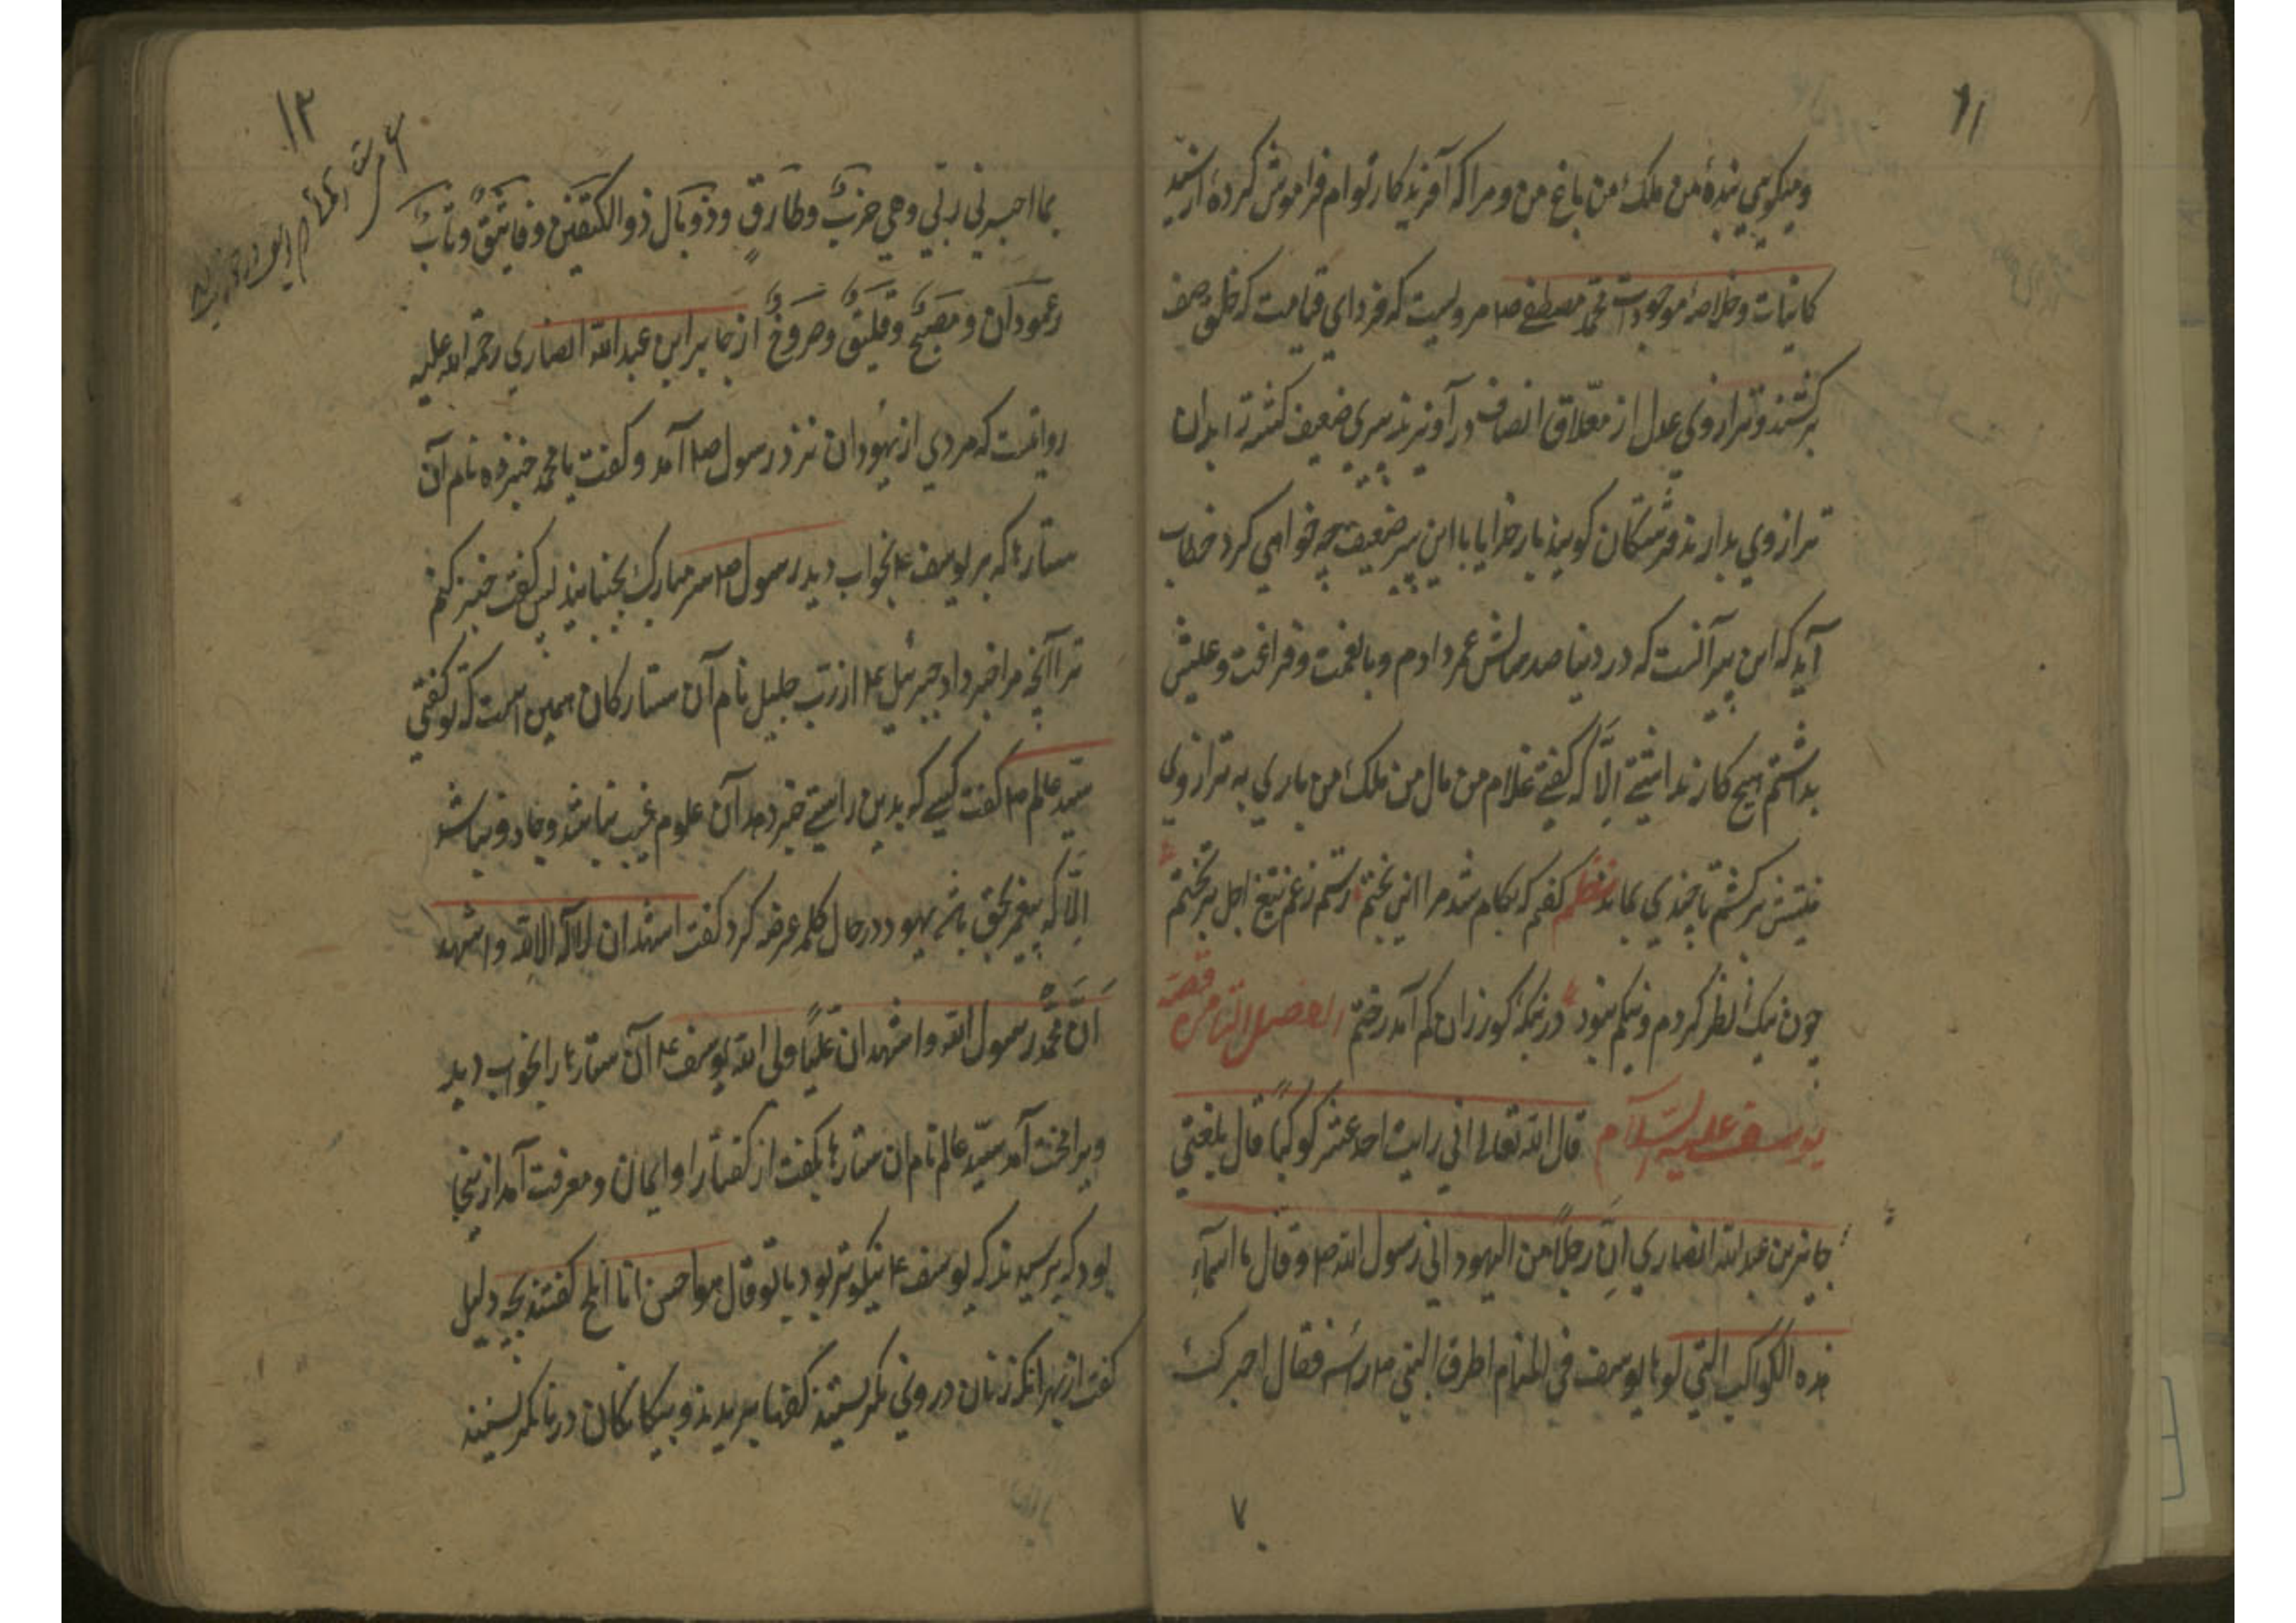 ۱۱
و میکوبی بندهٔ من ملک من باغ من و مرا که آفریدکار توام فراموش کردهٔ از سید
کاینات و خلاصهٔ موجودات محمد مصطفی ص مرویست که فردای قیامت که خلق صف
برکشند و ترازوی عدل از معلاق انصاف در آویزند پیری ضعیف کشته را بدان
ترازوی بدارند فرشتکان کویند بار خدایا با این پیر ضعیف چه خواهی کرد خطاب
آید که این پیر آنست که در دنیا صد سالش عمر دادم و با نعمت و فراغت و عیش
بداشتم هیچ کار نداشتی الّا که کفتی غلام من مال من ملک من باری به ترازوی
نیتش برکشم تا چندی بماند نظم کفتم که بکام شد مرا این بختم رستم ز غم تیغ اجل بر تختم
چون نیک نظر کردم و نیکم نبود در نیکه کور زان کم آمد رختم الفصل الثامن قصهٔ
یوسف علیه السلام قال الله تعالی انی رایت احد عشر کوکبًا قال بلغنی
جابر بن عبد الله انصاری انّ رجلًا من الیهود اتی رسول الله ص و قال ما اسمآء
هذه الکواکب التی لوها یوسف فی المنام اطرق النبی ص راسه فقال اخبرک
۷
۱۲
بما اخبرنی ربّی و هی حزبٌ و طارقٍ و ذو بال ذو الکتفین و فایتقٌ و ثابٌ
و عمودان و مصبحٌ و فلیقٌ و صروخٌ از جابر ابن عبد الله انصاری رحمة الله علیه
روایتست که مردی از یهودان نزد رسول ص آمد و کفت یا محمد خبر ده نام آن
ستارها که بر یوسف ع بخواب دید رسول ص سر مبارک بجنبانید پس کفت خبر کنم
ترا آنچه مرا خبر داد جبرئیل ع از رب جلیل نام آن ستارکان همین است که تو کفتی
سید عالم ص کفت کسی که بدین راستی خبر دهد آن علوم غیب نباشد و جادو نباشد
الّا که پیغمبر بحق باشد یهود در حال کلمه عرضه کرد کفت اشهد ان لا اله الا الله و اشهد
انّ محمدٌ رسول الله و اشهد ان علیًا ولی الله یوسف ع آن ستارها را بخواب دید
و برا بخت آمد سید عالم نام ان ستارها بکفت از کفتار او ایمان و معرفت آمد از ینجا
بود که پرسیدند که یوسف ع نیکوتر بود یا تو قال هو احسن انا املح کفتند بچه دلیل
کفت از بهر آنکه زنان در وی نکریستند کفها بریدند و بیکانکان در ما نکریستند